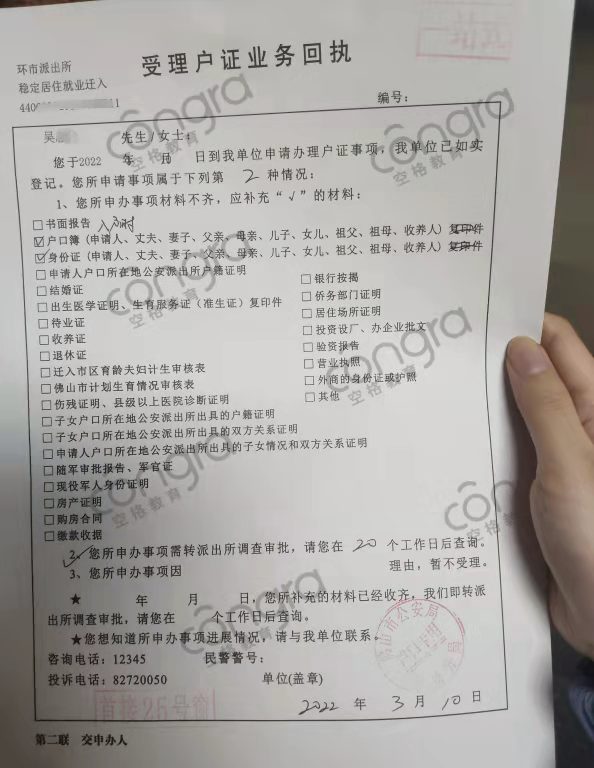 受理户证业务回执
环市派出所
稳定居住就业迁入
编号：
吴 先生/女士：
您于2022 年 月 日到我单位申请办理户证事项，我单位已如实
登记。您所申请事项属于下列第 2 种情况：
1、您所申办事项材料不齐，应补充“√”的材料：
□书面报告 入户时
☑户口簿（申请人、丈夫、妻子、父亲、母亲、儿子、女儿、祖父、祖母、收养人）复印件
☑身份证（申请人、丈夫、妻子、父亲、母亲、儿子、女儿、祖父、祖母、收养人）复印件
□申请人户口所在地公安派出所户籍证明
□结婚证
□出生医学证明、生育服务证（准生证）复印件
□待业证
□收养证
□退休证
□迁入市区育龄夫妇计生审核表
□佛山市计划生育情况审核表
□伤残证明、县级以上医院诊断证明
□银行按揭
□侨务部门证明
□居住场所证明
□投资设厂、办企业批文
□验资报告
□营业执照
□外商的身份证或护照
□其他
□子女户口所在地公安派出所出具的户籍证明
□子女户口所在地公安派出所出具的双方关系证明
□申请人户口所在地公安派出所出具的子女情况和双方关系证明
□随军审批报告、军官证
□现役军人身份证明
□房产证明
□购房合同
□缴款收据
2、您所申办事项需转派出所调查审批，请您在 20 个工作日后查询。
3、您所申办事项因 理由，暂不受理。
★ 年 月 日，您所补充的材料已经收齐，我们即转派
出所调查审批，请您在 个工作日后查询。
★您想知道所申办事项进展情况，请与我单位联系。
咨询电话：12345 民警警号：
投诉电话：82720050 单位(盖章)
2022 年 3 月 10 日
首接25号窗
第二联 交申办人
congra
空格教育
congra
空格教育
congra
空格教育
congra
空格教育
congra
空格教育
congra
空格教育